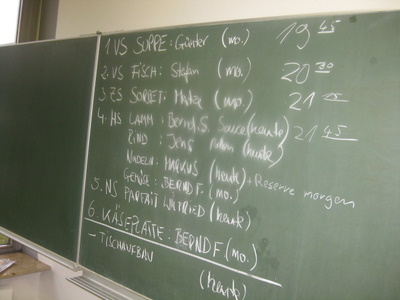 1. VS SUPPE: Günter (mo.) 19 45
2. VS FISCH: Stefan (mo.) 20 30
3. ZS SORBET: (mo.) 21
4. HS LAMM: Bernd S. Sauce (heute) 21 45
RIND: Jens (heute)
NUDELN: MARKUS (heute) + Reserve morgen
GEMÜSE: BERND F. (mo.)
5. NS PARFAIT WILFRIED (heute)
6. KÄSEPLATTE: BERND F (mo.)
- TISCHAUFBAU (heute)